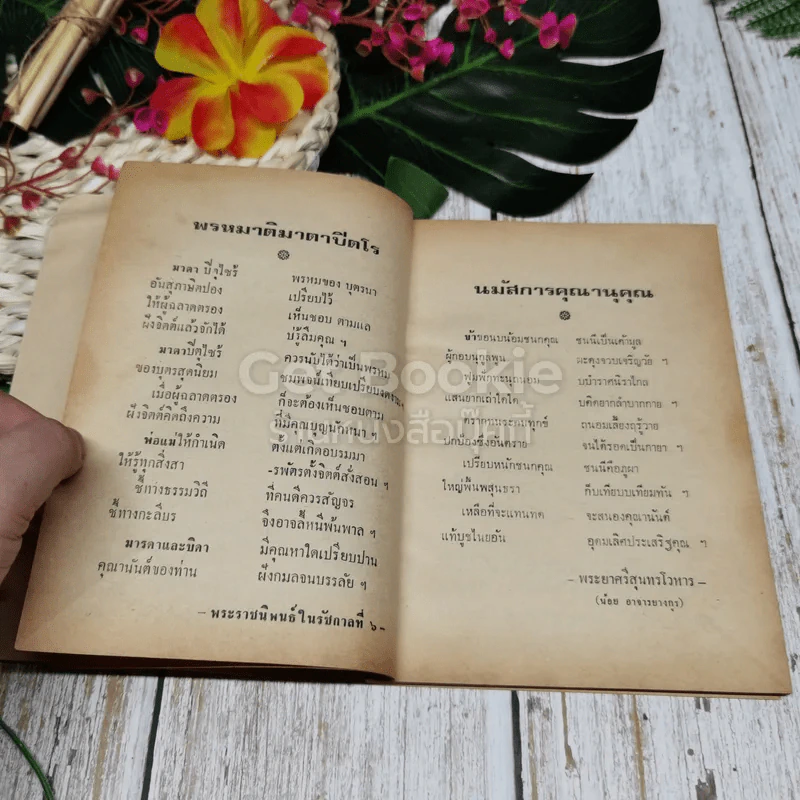 พรหมาติมาตาปิตโร
มาดา บีตุไซร้ พรหมของ บุตรนา
อันสุภาษิตปอง เปรียบไว้
ให้ผู้ฉลาดตรอง เห็นชอบ ตามแล
ผึ่งจิตต์แล้วจักได้ บ่รู้ลืมคุณ ฯ
มาดาบีตุไซร้ ควรนับได้ว่าเป็นพรหม
ของบุตรสุดนิยม
เมื่อผู้ฉลาดตรอง ก็จะต้องเห็นชอบตาม
ผึ่งจิตต์คิดถึงความ
พ่อแม่ให้กำเนิด ตั้งแต่เกิดอบรมมา
ให้รู้ทุกสิ่งสา -รพัตรตั้งจิตต์สั่งสอน ฯ
ชี้ทางธรรมวิถี ที่คนดีควรสัญจร
ชี้ทางกะลีบร จึงอาจลี้หนีพ้นพาล ฯ
มารดาและบิดา มีคุณหาใดเปรียบปาน
คุณานันต์ของท่าน ผึ่งกมลจนบรรลัย ฯ
– พระราชนิพนธ์ในรัชกาลที่ ๖ –
นมัสการคุณานุคุณ
ข้าขอนบน้อมชนกคุณ ชนนีเป็นเค้ามูล
ผู้กอบนุกูลพูน ผะดุงจวบเจริญวัย ฯ
ฟูมฟักทะนุถนอม บบำราศนิราไกล
แสนยากเท่าใดใด บคิดยากลำบากกาย ฯ
ถนอมเลี้ยงฤรู้วาย
ปกป้องซึ่งอันตราย จนได้รอดเป็นกายา ฯ
เปรียบหนักชนกคุณ ชนนีคือภูผา
ใหญ่พื้นพสุนธรา ก็บเทียบบเทียมทัน ฯ
เหลือที่จะแทนทด จะสนองคุณานันต์
แท้บูชไนยอัน อุดมเลิศประเสริฐคุณ ฯ
– พระยาศรีสุนทรโวหาร –
(น้อย อาจารยางกูร)
Get Bookie
ร้านหนังสือบุ๊กกี้